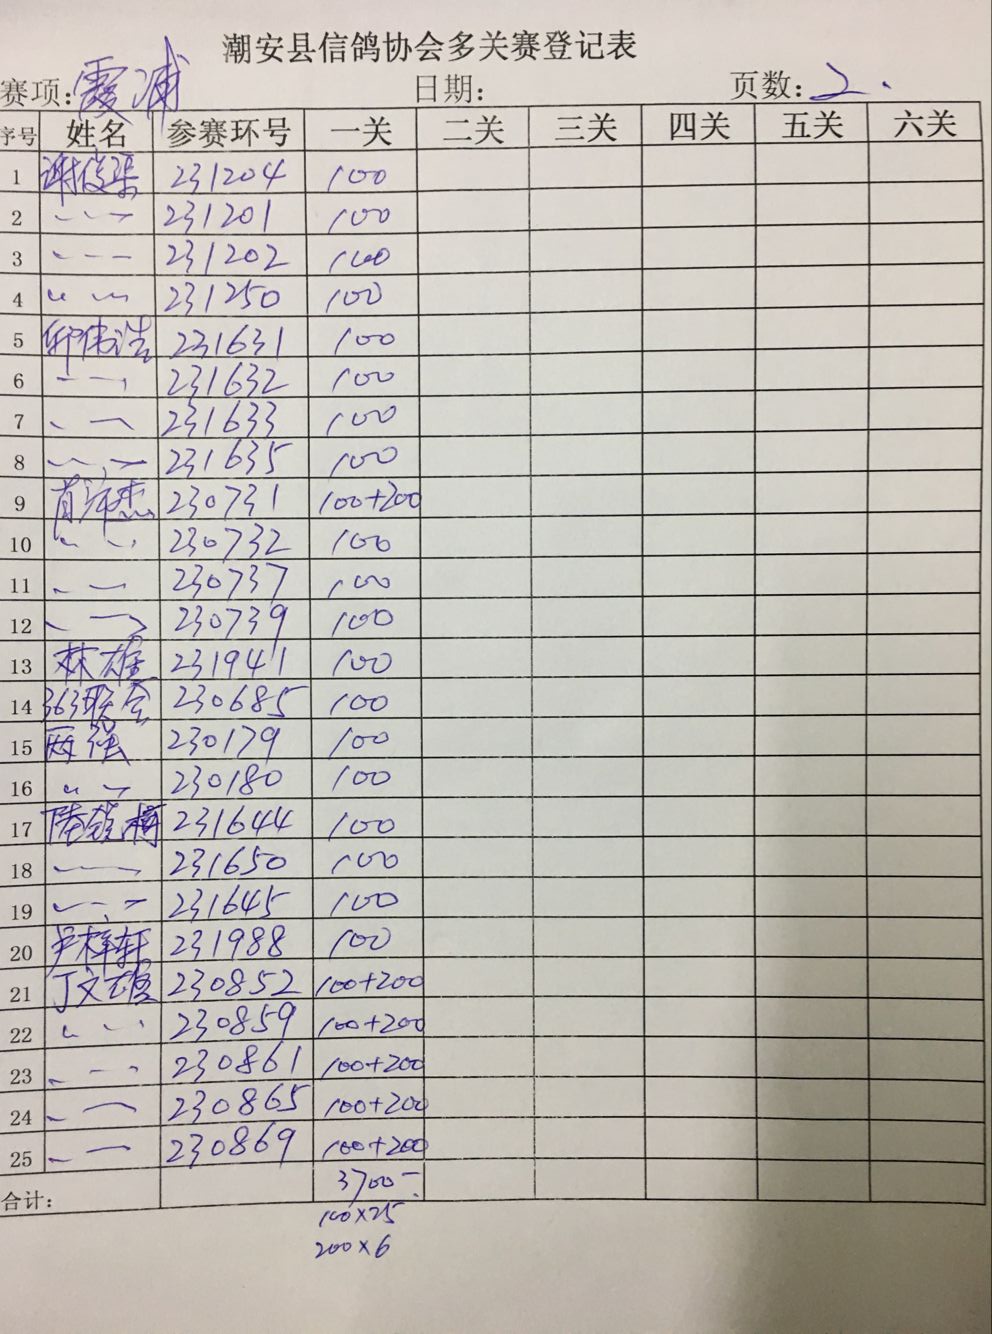 潮安县信鸽协会多关赛登记表
赛项:霞浦 日期: 页数:2.
序号 姓名 参赛环号 一关 二关 三关 四关 五关 六关
1 谢俊 231204 100
2 231201 100
3 231202 100
4 〃 231250 100
5 伟浩 231631 100
6 231632 100
7 231633 100
8 231635 100
9 肖沛杰 230731 100+200
10 〃 230732 100
11 230737 100
12 230739 100
13 林雄 231941 100
14 363联合 230685 100
15 两强 230179 100
16 〃 230180 100
17 231644 100
18 231650 100
19 231645 100
20 尹梓轩 231988 100
21 丁文雄 230852 100+200
22 〃 230859 100+200
23 230861 100+200
24 230865 100+200
25 230869 100+200
合计: 3700-
100×25
200×6